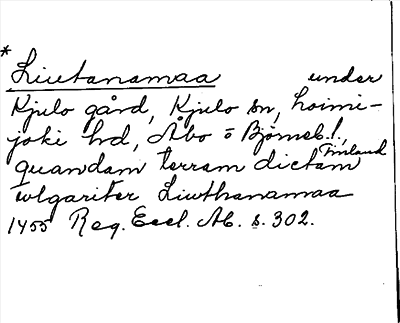 * Liutanamaa under
Kjulo gård, Kjulo sn, Loimi-
joki hd, Åbo o Björneb.l.,
Finland
quandam terram dictam
wlgariter Liwthanamaa
1455 Reg. Eccl. Ab. s. 302.